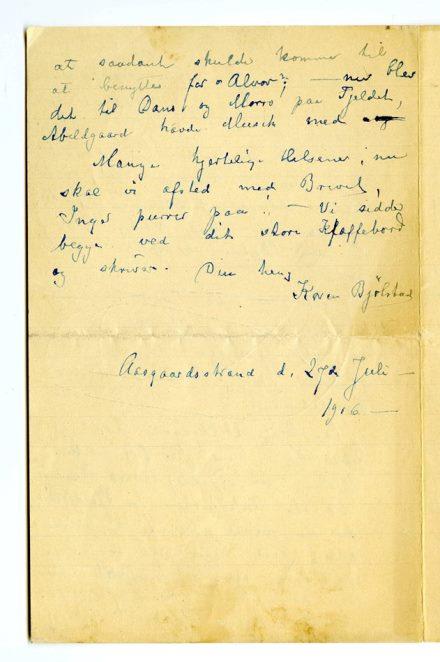 at saadant skulde komme til
at benyttes for "Alvor"; — nu blev
det til Dans og Morro paa Fjeldet,
Abildgaard havde Musik med
Mange hjertelige Hilsener; nu
skal vi afsted med Brevet,
Inger purrer paa! — Vi sidder
begge ved dit store Kaffebord
og skriver. Din heng
Karen Bjölstad
Aasgaardsstrand d. 27de Juli —
1916 —